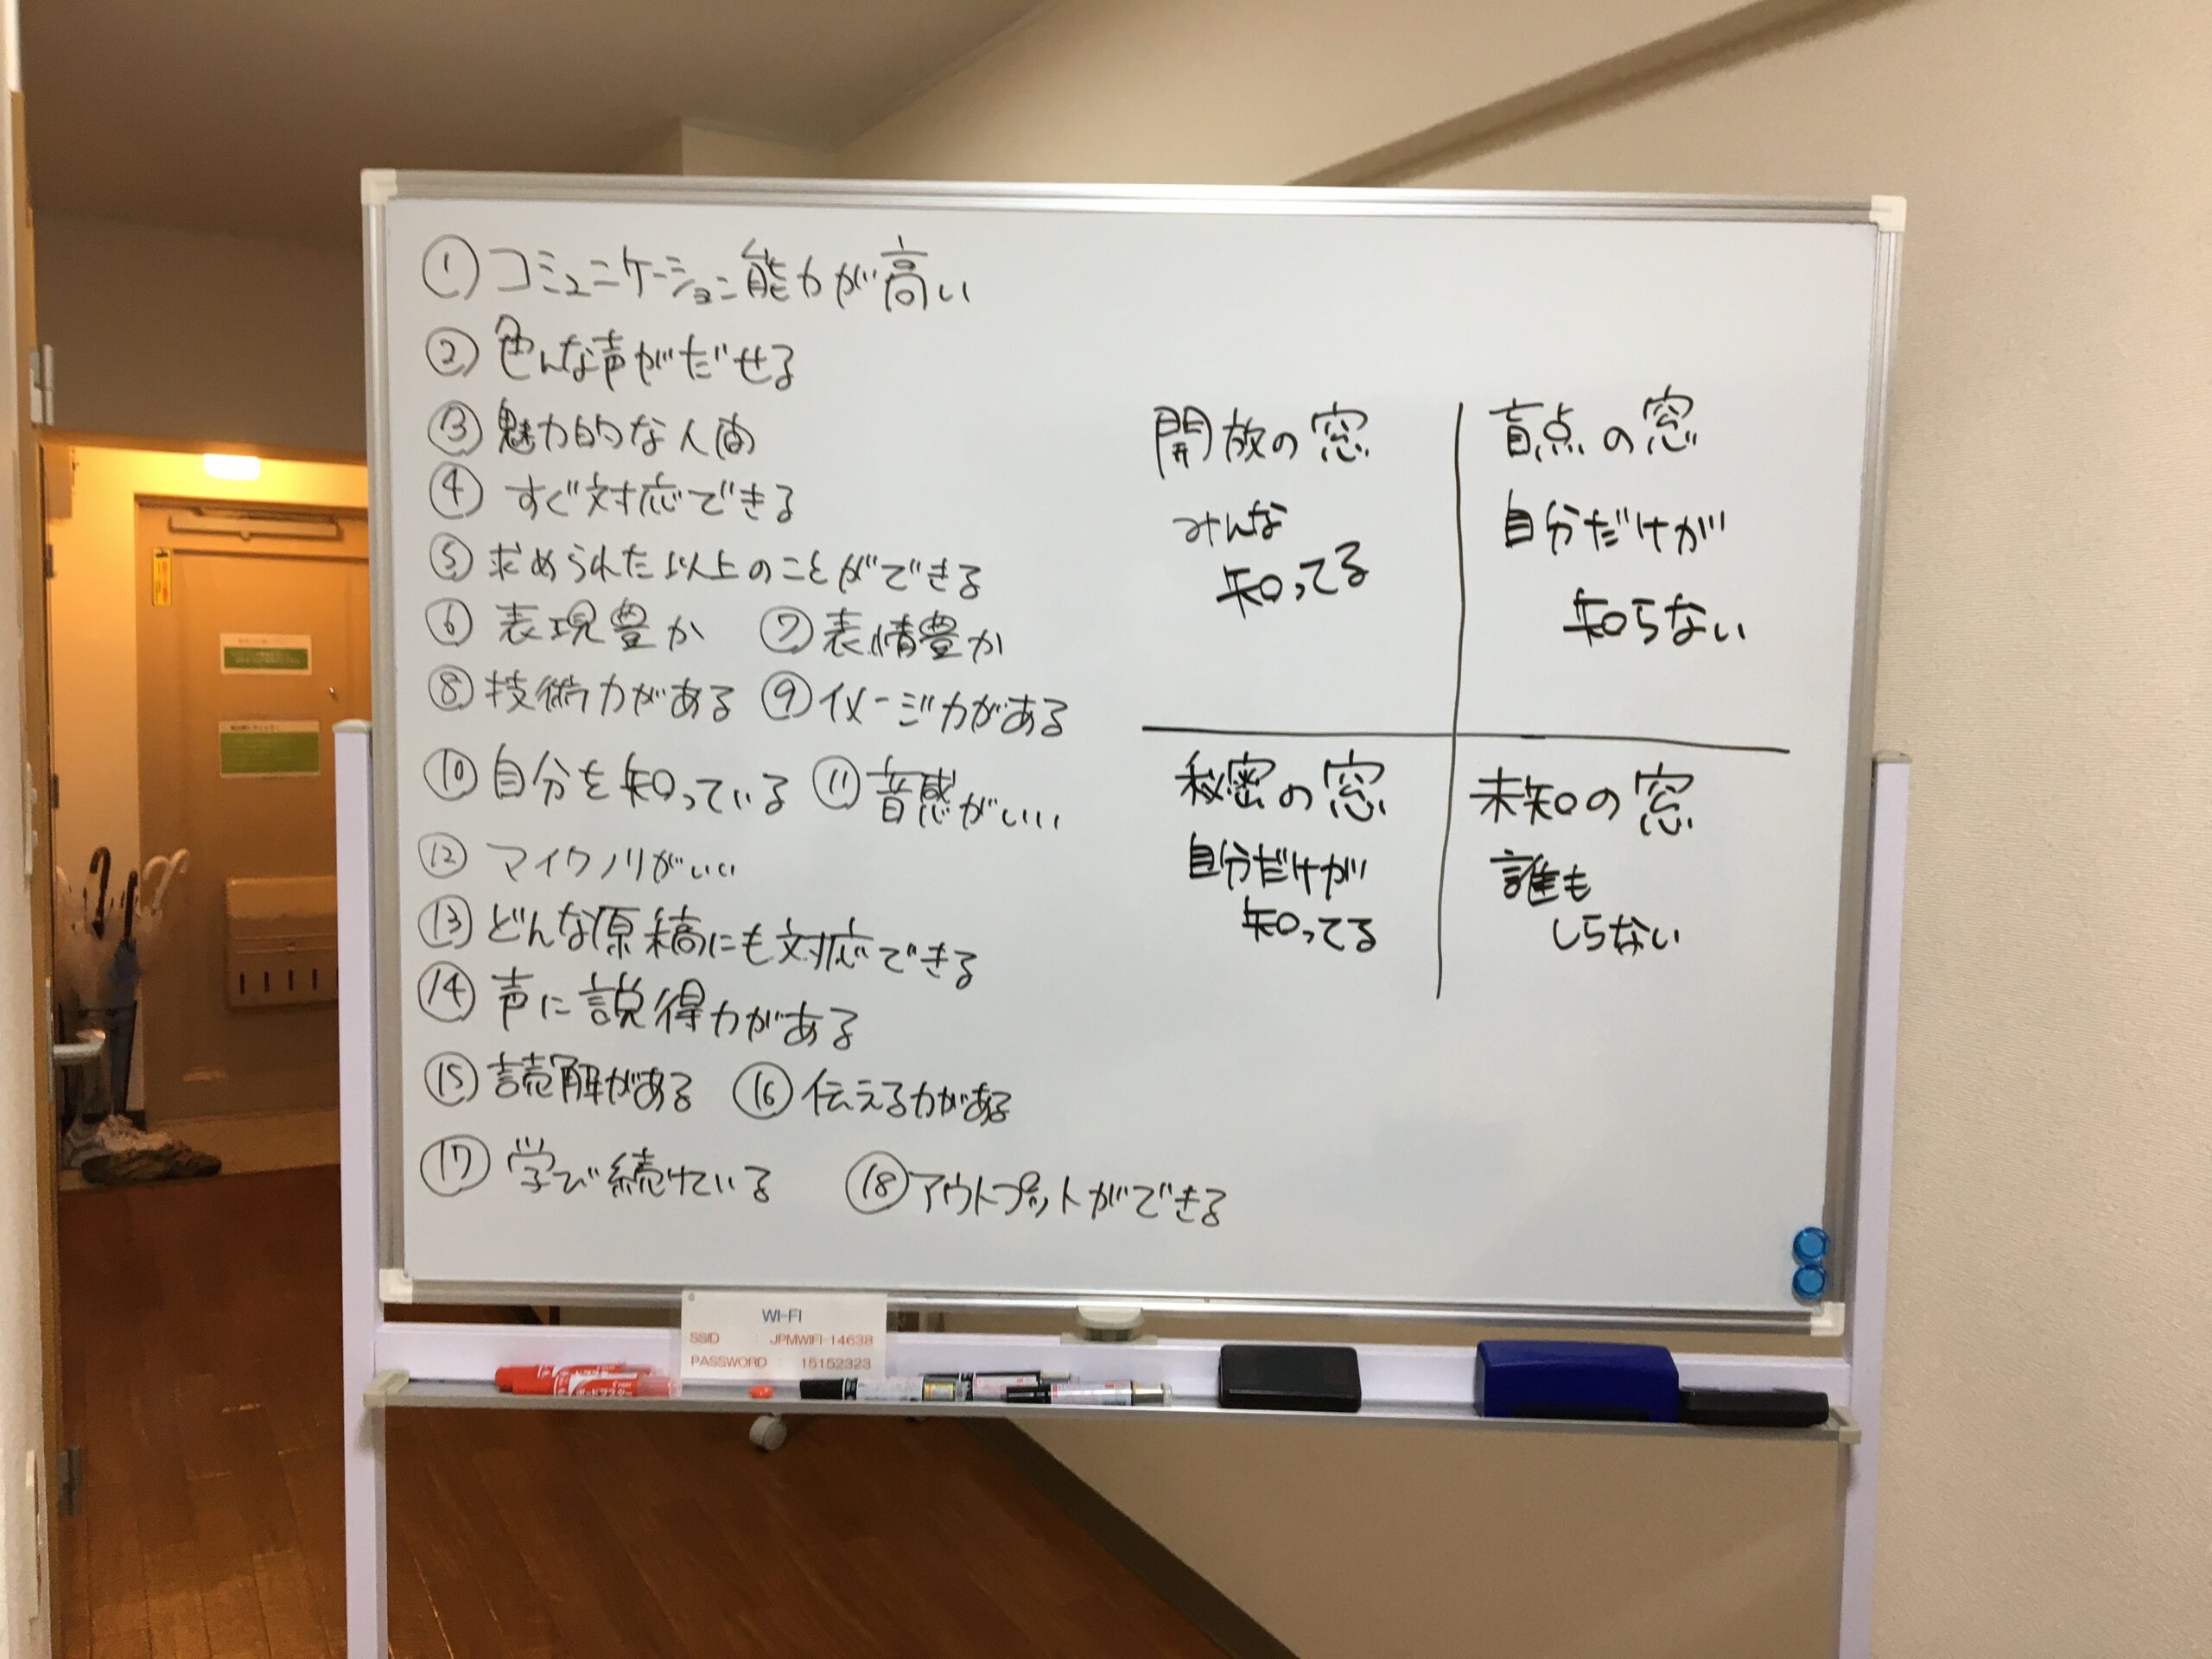 ① コミュニケーション能力が高い
② 色んな声がだせる
③ 魅力的な人間
④ すぐ対応できる
⑤ 求められた以上のことができる
⑥ 表現豊か ⑦ 表情豊か
⑧ 技術力がある ⑨ イメージ力がある
⑩ 自分を知っている ⑪ 音感がいい
⑫ マイクノリがいい
⑬ どんな原稿にも対応できる
⑭ 声に説得力がある
⑮ 読解がある ⑯ 伝える力がある
⑰ 学び続けている ⑱ アウトプットができる
開放の窓
みんな
知ってる
盲点の窓
自分だけが
知らない
秘密の窓
自分だけが
知ってる
未知の窓
誰も
しらない
WI-FI
SSID : JPMWIFI-14638
PASSWORD : 15152323